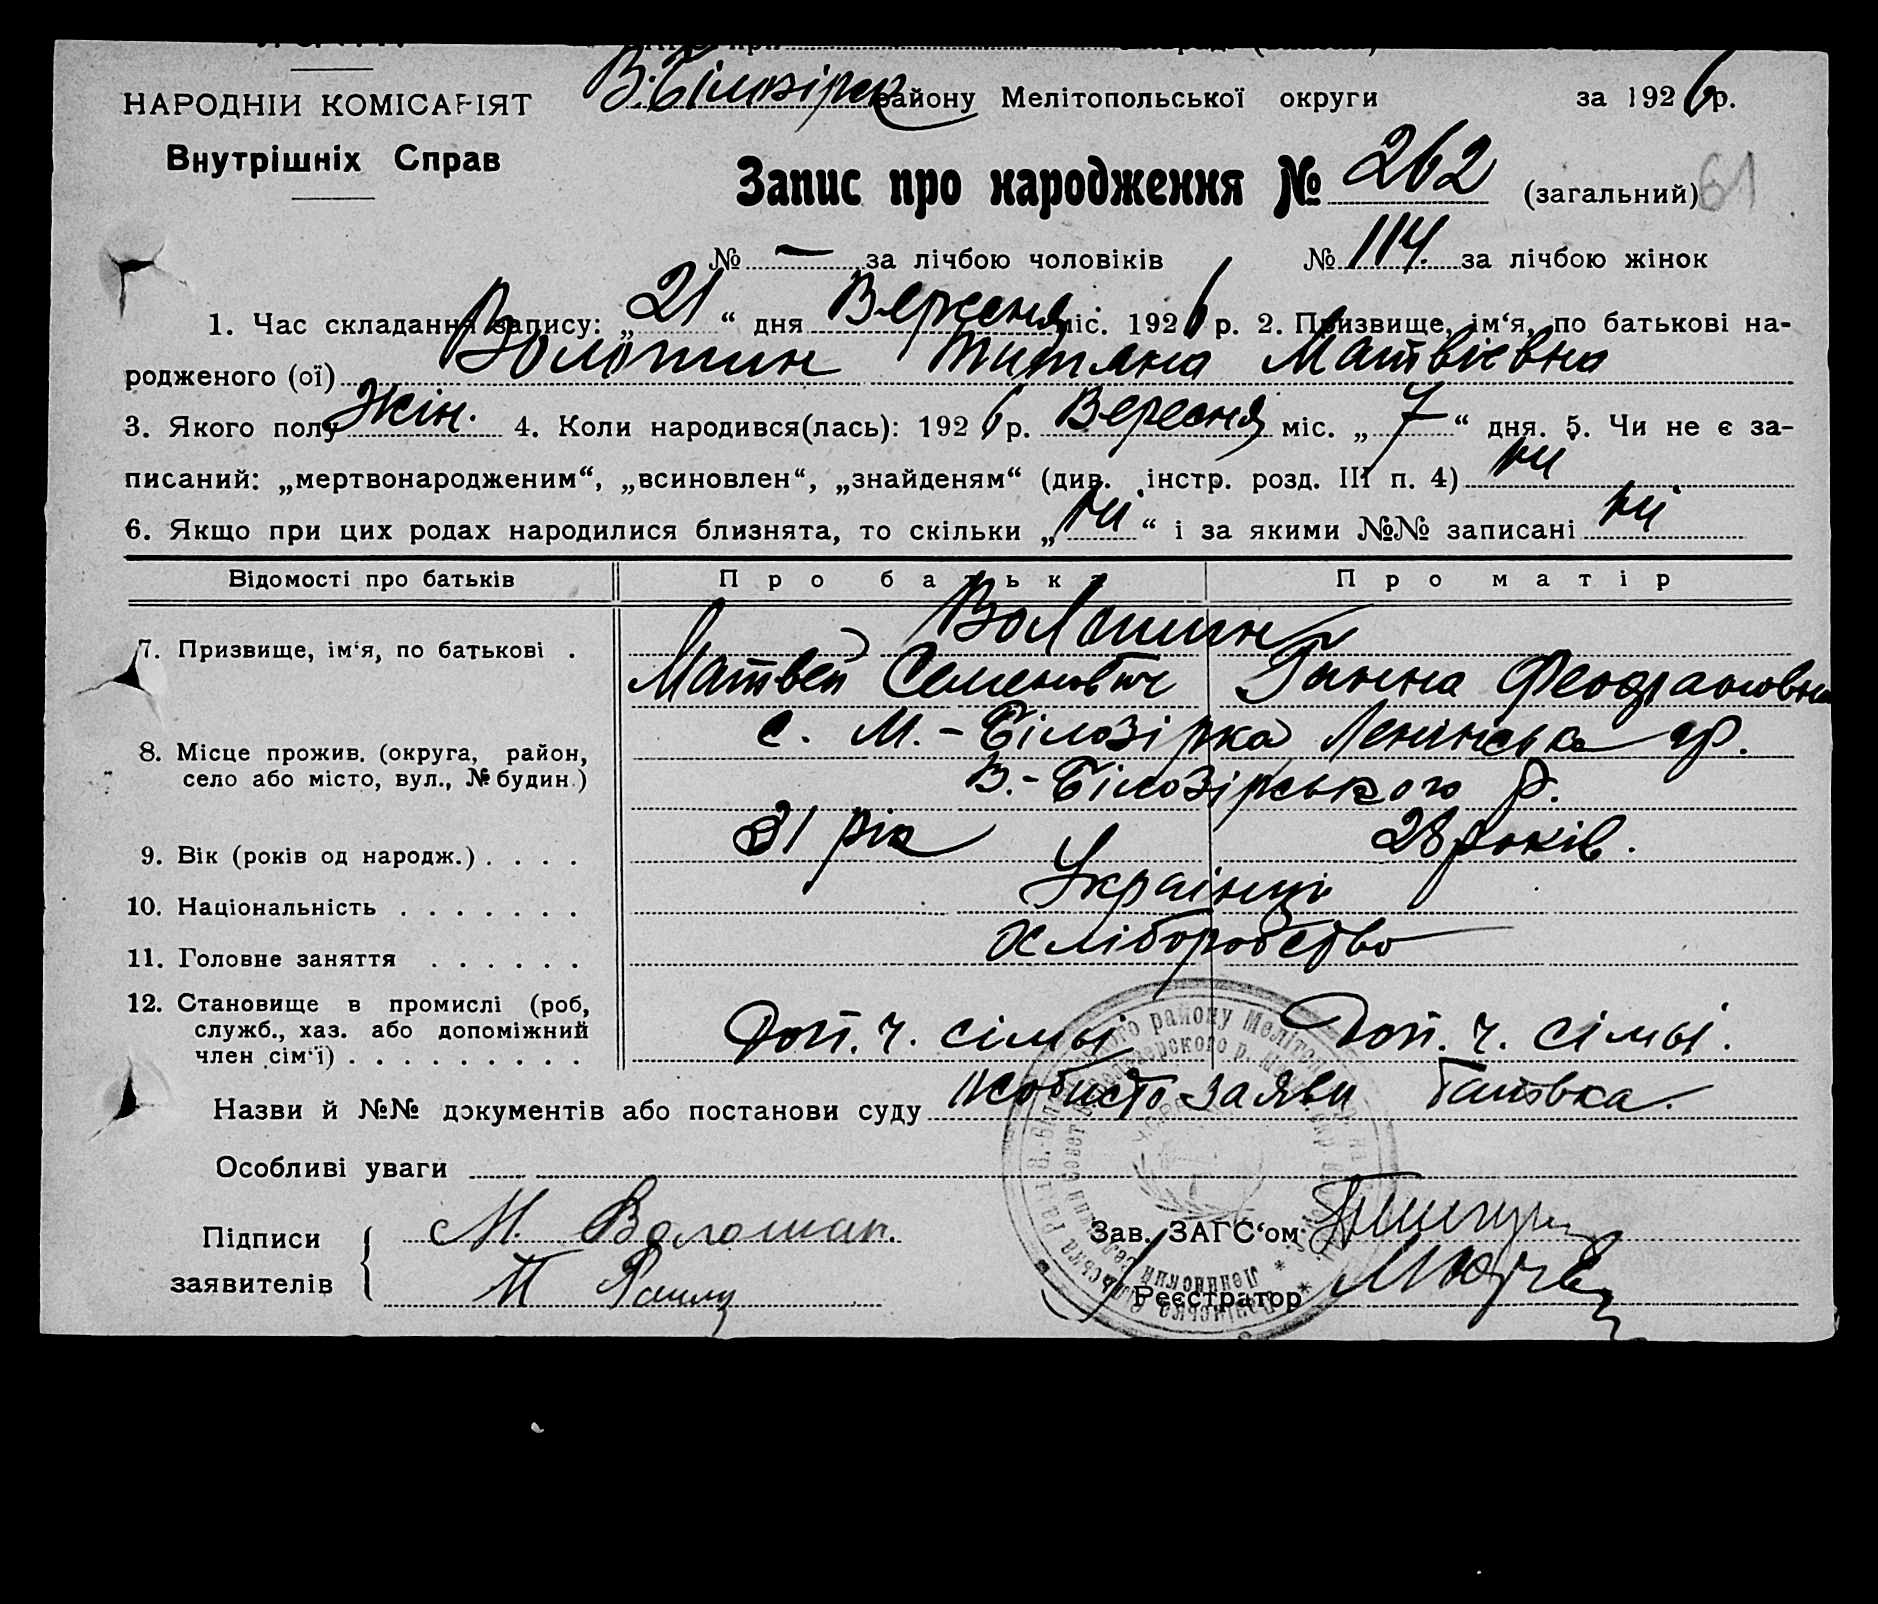 НАРОДНІЙ КОМІСАРІЯТ
Внутрішніх Справ
В. Білозірськ району Мелітопольської округи за 1926 р.
Запис про народження № 262 (загальний) 61
№ — за лічбою чоловіків № 114. за лічбою жінок
1. Час складання запису: „21“ дня Вересня міс. 1926 р. 2. Призвище, ім‘я, по батькові на-
родженого (ої) Волошин Титяна Матвієвна
3. Якого полу Жін. 4. Коли народився(лась): 1926 р. Вересня міс. „7“ дня. 5. Чи не є за-
писаний: „мертвонародженим“, „всиновлен“, „знайденям“ (див. інстр. розд. III п. 4) ні
6. Якщо при цих родах народилися близнята, то скільки „ні“ і за якими №№ записані ні
Відомості про батьків Про батька Про матір
Волошин
7. Призвище, ім‘я, по батькові .
Матвей Семенович Ганна
с. М.-Білозірка Ленінська
8. Місце прожив. (округа, район,
село або місто, вул., № будин.)
В.-Білозірського р.
9. Вік (років од народж.) . . . . 31 рік 28 років.
10. Національність . . . . . . . Українці
11. Головне заняття . . . . . . хліборобство
12. Становище в промислі (роб,
служб., хаз. або допоміжний
член сім‘ї) . . . . . . . . . Доп. ч. сімьі Доп. ч. сімьі.
Назви й №№ документів або постанови суду особисто заяви батька.
Особливі уваги
Підписи
заявителів
М. Волошин.
Зав. ЗАГС‘ом
Реєстратор